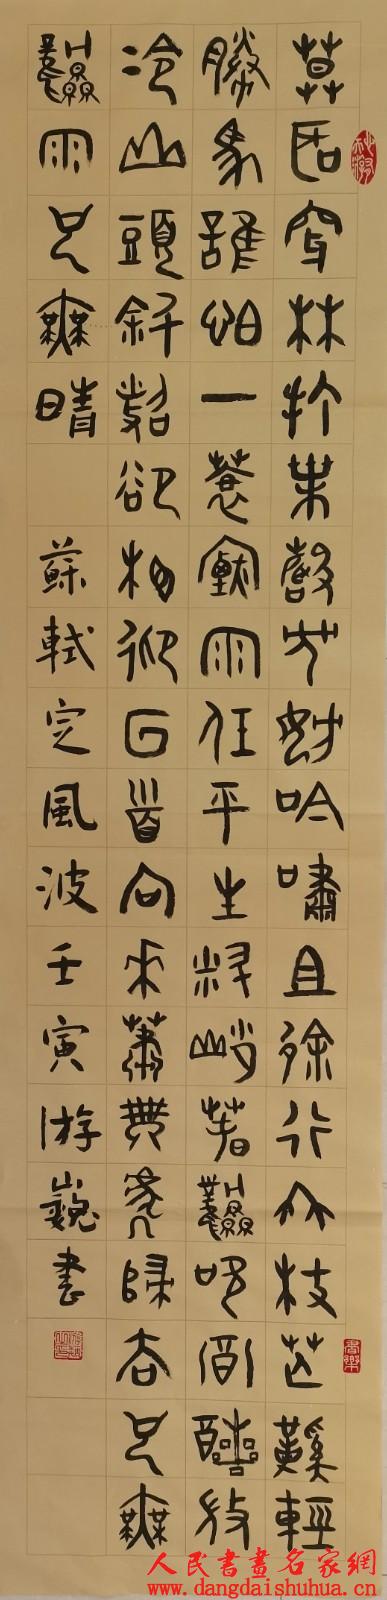 莫聽穿林打葉聲何妨吟嘯且徐行竹杖芒鞋輕
勝馬誰怕一蓑煙雨任平生料峭春風吹酒醒微
冷山頭斜照卻相迎回首向來蕭瑟處歸去也無
風雨也無晴 蘇軾定風波壬寅游巍書
人民書畫名家網
www.dangdaishuhua.cn